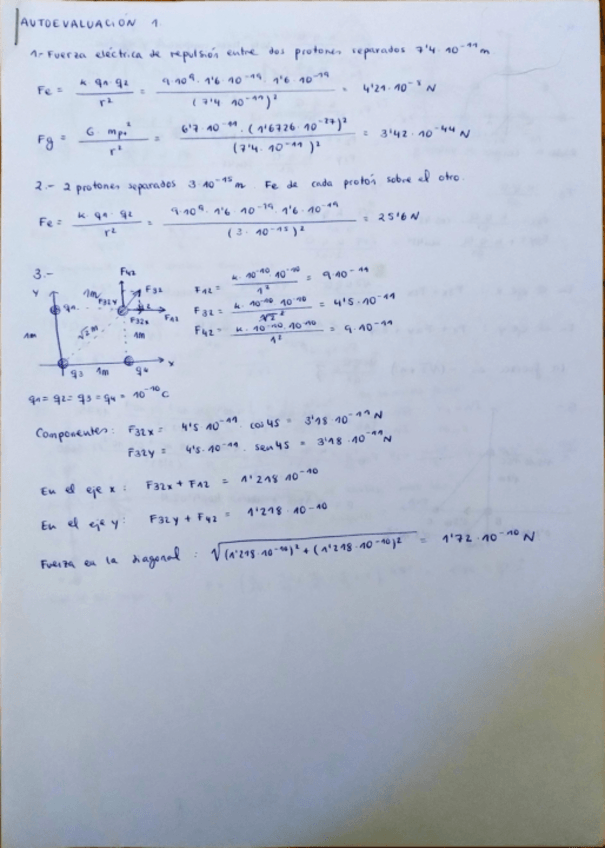 AUTOEVALUACIÓN 1.
1.- Fuerza eléctrica de repulsión entre dos protones separados 7'4·10⁻¹¹ m.
Fe = k·q1·q2 / r² = 9·10⁹·1'6·10⁻¹⁹·1'6·10⁻¹⁹ / (7'4·10⁻¹¹)² = 4'21·10⁻⁸ N
Fg = G·mp² / r² = 6'7·10⁻¹¹·(1'6726·10⁻²⁷)² / (7'4·10⁻¹¹)² = 3'42·10⁻⁴⁴ N
2.- 2 protones separados 3·10⁻¹⁵ m. Fe de cada protón sobre el otro.
Fe = k·q1·q2 / r² = 9·10⁹·1'6·10⁻¹⁹·1'6·10⁻¹⁹ / (3·10⁻¹⁵)² = 25'6 N
3.-
F42
Y 1m F32y F32
q1 q2 F32x F12
1m √2 m 1m
q3 1m q4 X
F12 = k·10⁻¹⁰·10⁻¹⁰ / 1² = 9·10⁻¹¹
F32 = k·10⁻¹⁰·10⁻¹⁰ / √2² = 4'5·10⁻¹¹
F42 = k·10⁻¹⁰·10⁻¹⁰ / 1² = 9·10⁻¹¹
q1 = q2 = q3 = q4 = 10⁻¹⁰ C
Componentes: F32x = 4'5·10⁻¹¹·cos45 = 3'18·10⁻¹¹ N
F32y = 4'5·10⁻¹¹·sen45 = 3'18·10⁻¹¹ N
En el eje x: F32x + F12 = 1'218·10⁻¹⁰
En el eje y: F32y + F42 = 1'218·10⁻¹⁰
Fuerza en la diagonal: √(1'218·10⁻¹⁰)² + (1'218·10⁻¹⁰)² = 1'72·10⁻¹⁰ N